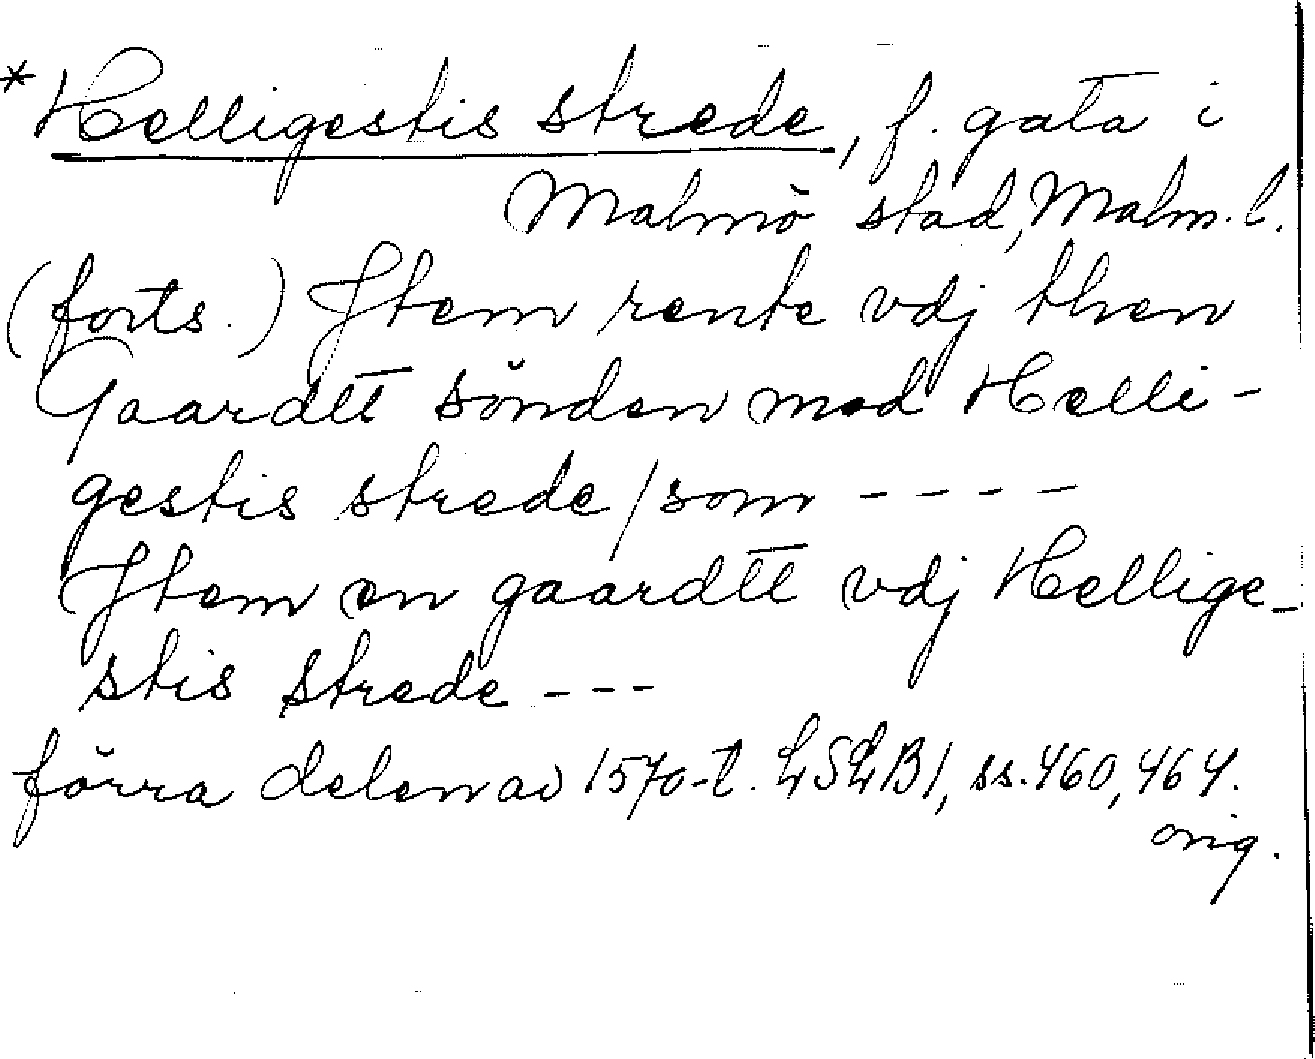 *Helligestis strede, f. gata i
Malmö stad, Malm. l.
(forts.) Jtem rente vdj then
Gaardtt sönden med Helli-
gestis strede / som - - - -
Jtem en gaardtt vdj Hellige-
stis strede - - -
förra delen av 1570-t. LSLB1, ss. 460, 464.
orig.